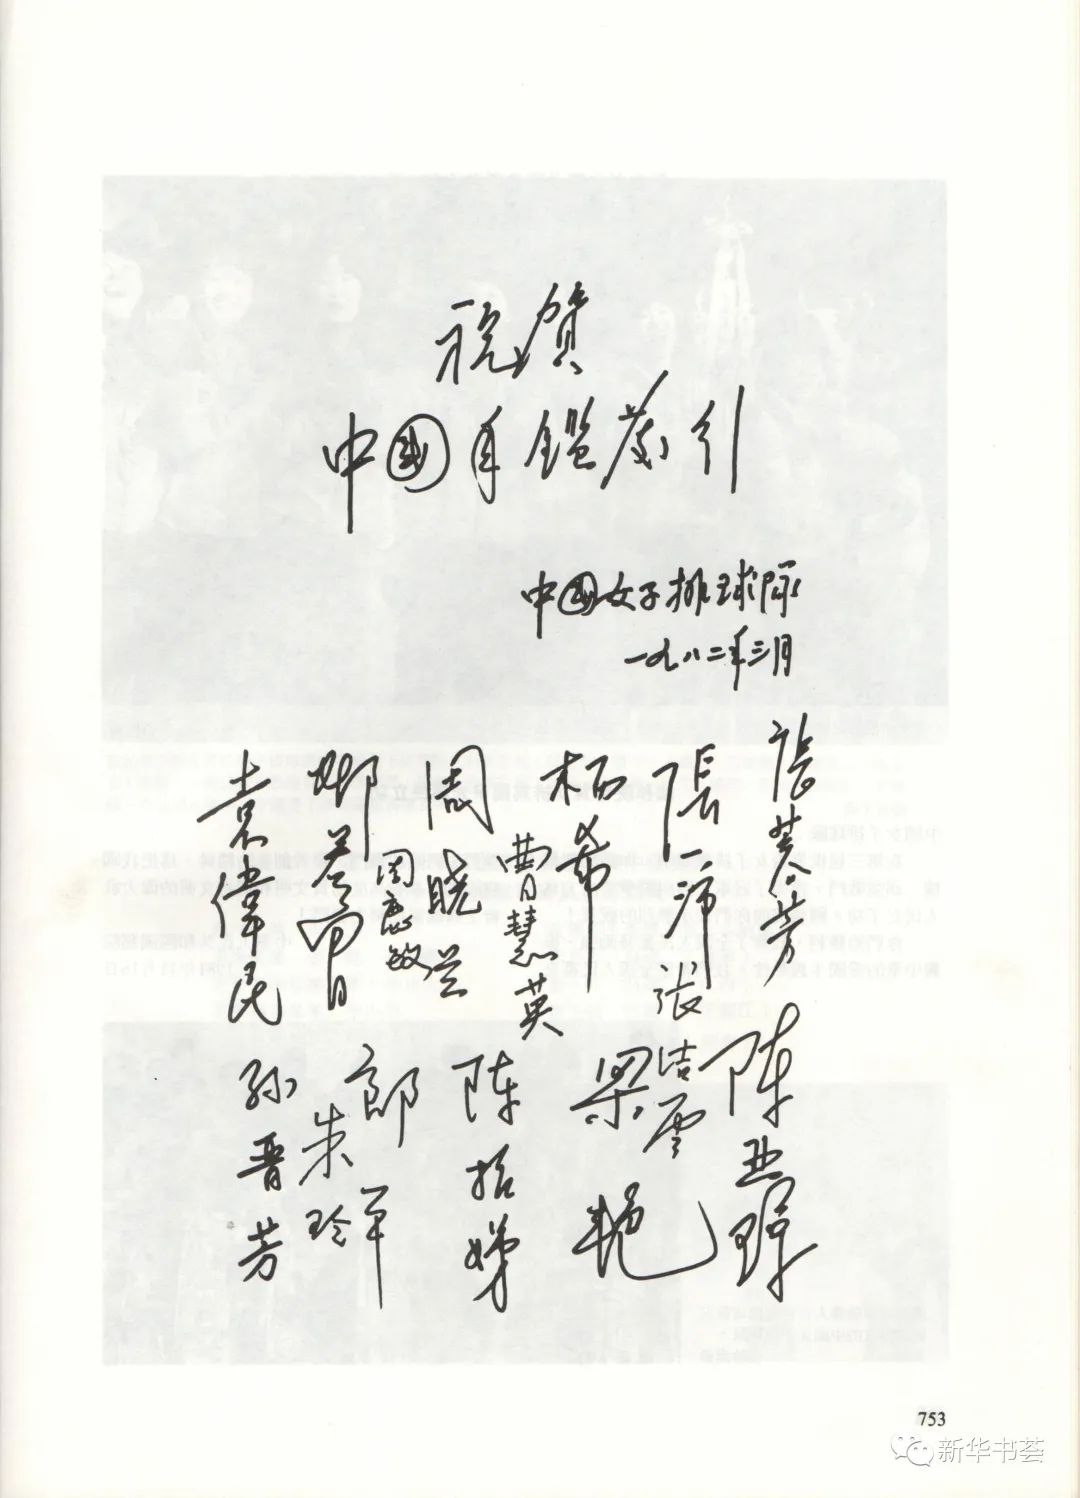 祝賀
中國年鑑
中國女子排球队
一九八二年三月
袁偉民
鄧若曾
周晓兰
周鹿敏
杨希
曹慧英
張一沛
张洁雲
张蓉芳
孙晋芳
郎平
朱玲
陈招娣
梁艳
陈亚琼
753
新华书荟